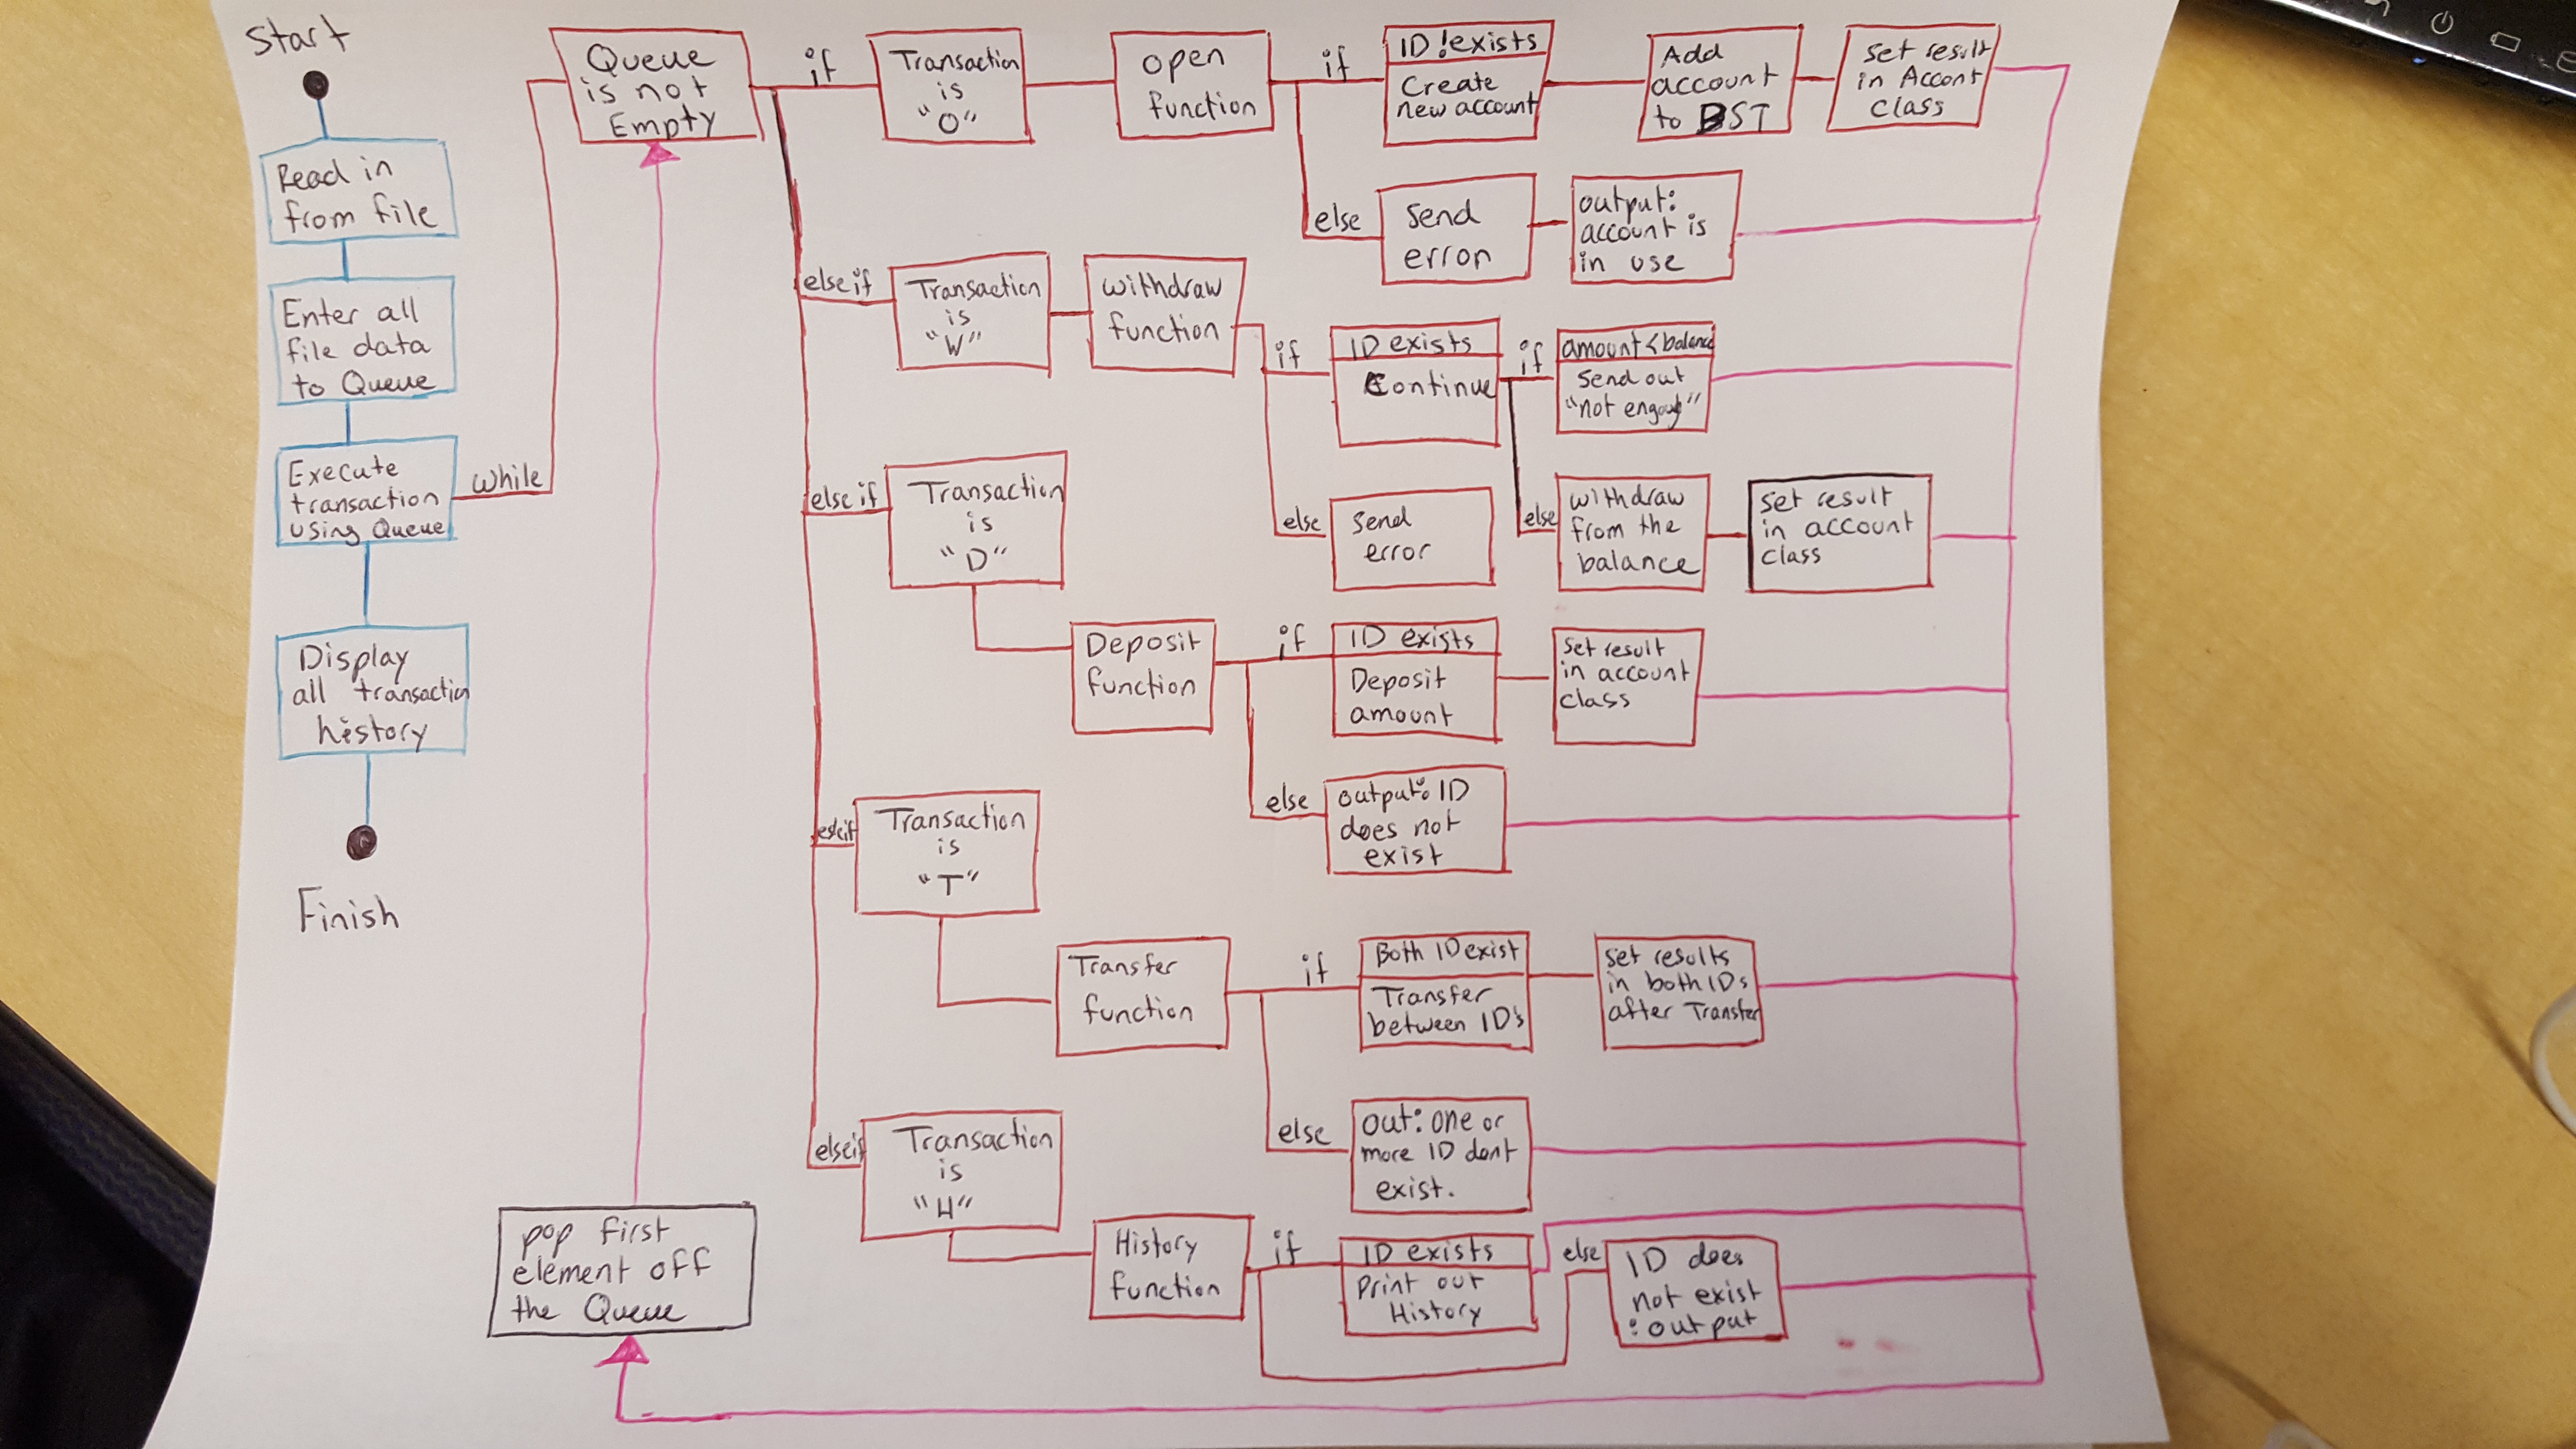 Start
Read in
from file
Enter all
file data
to Queue
Execute
transaction
using Queue
while
Display
all transaction
history
Finish
Queue
is not
Empty
if
Transaction
is
"O"
open
function
if
ID !exists
Create
new account
Add
account
to BST
Set result
in Accont
Class
else
Send
error
output:
account is
in use
else if
Transaction
is
"W"
withdraw
function
if
ID exists
Continue
if
amount < balance
Send out
"not
else
Send
error
else
withdraw
from the
balance
Set result
in account
class
else if
Transaction
is
"D"
Deposit
function
if
ID exists
Deposit
amount
Set result
in account
class
else
output: ID
does not
exist
else if
Transaction
is
"T"
Transfer
function
if
Both ID exist
Transfer
between ID's
Set results
in both IDs
after Transfer
else
out: one or
more ID dont
exist.
else if
Transaction
is
"H"
History
function
if
ID exists
Print out
History
else
ID does
not exist
: output
pop first
element off
the Queue